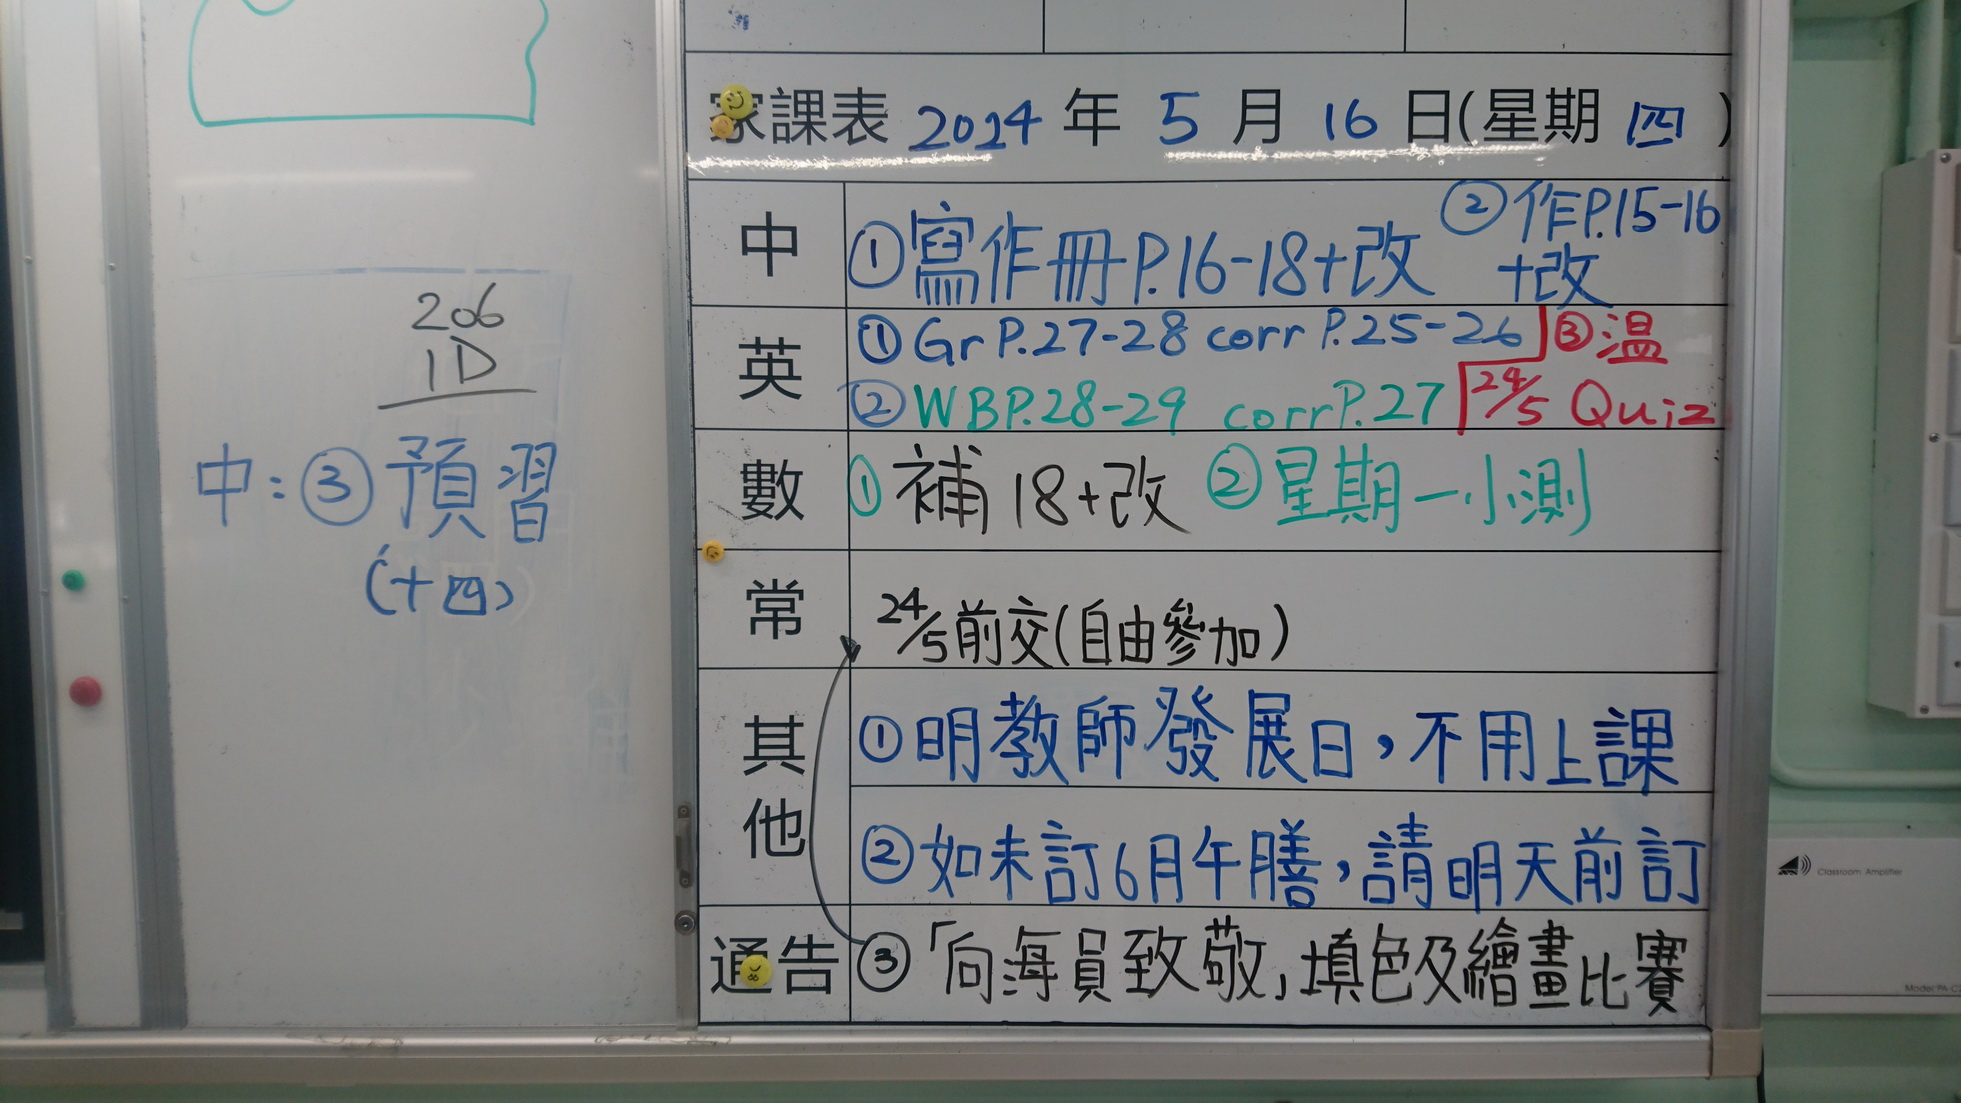 206
1D
中：③預習
(十四)
家課表 2024 年 5 月 16 日(星期 四 )
中 ①寫作冊P.16-18+改 ②作P.15-16
+改
英 ①Gr P.27-28 corr P.25-26 ③溫
②WBP.28-29 corrP.27 24/5 Quiz
數 ①補18+改 ②星期一小測
常 24/5前交(自由參加)
其他 ①明教師發展日，不用上課
②如未訂6月午膳，請明天前訂
通告 ③「向海員致敬」填色及繪畫比賽
Classroom Amplifier